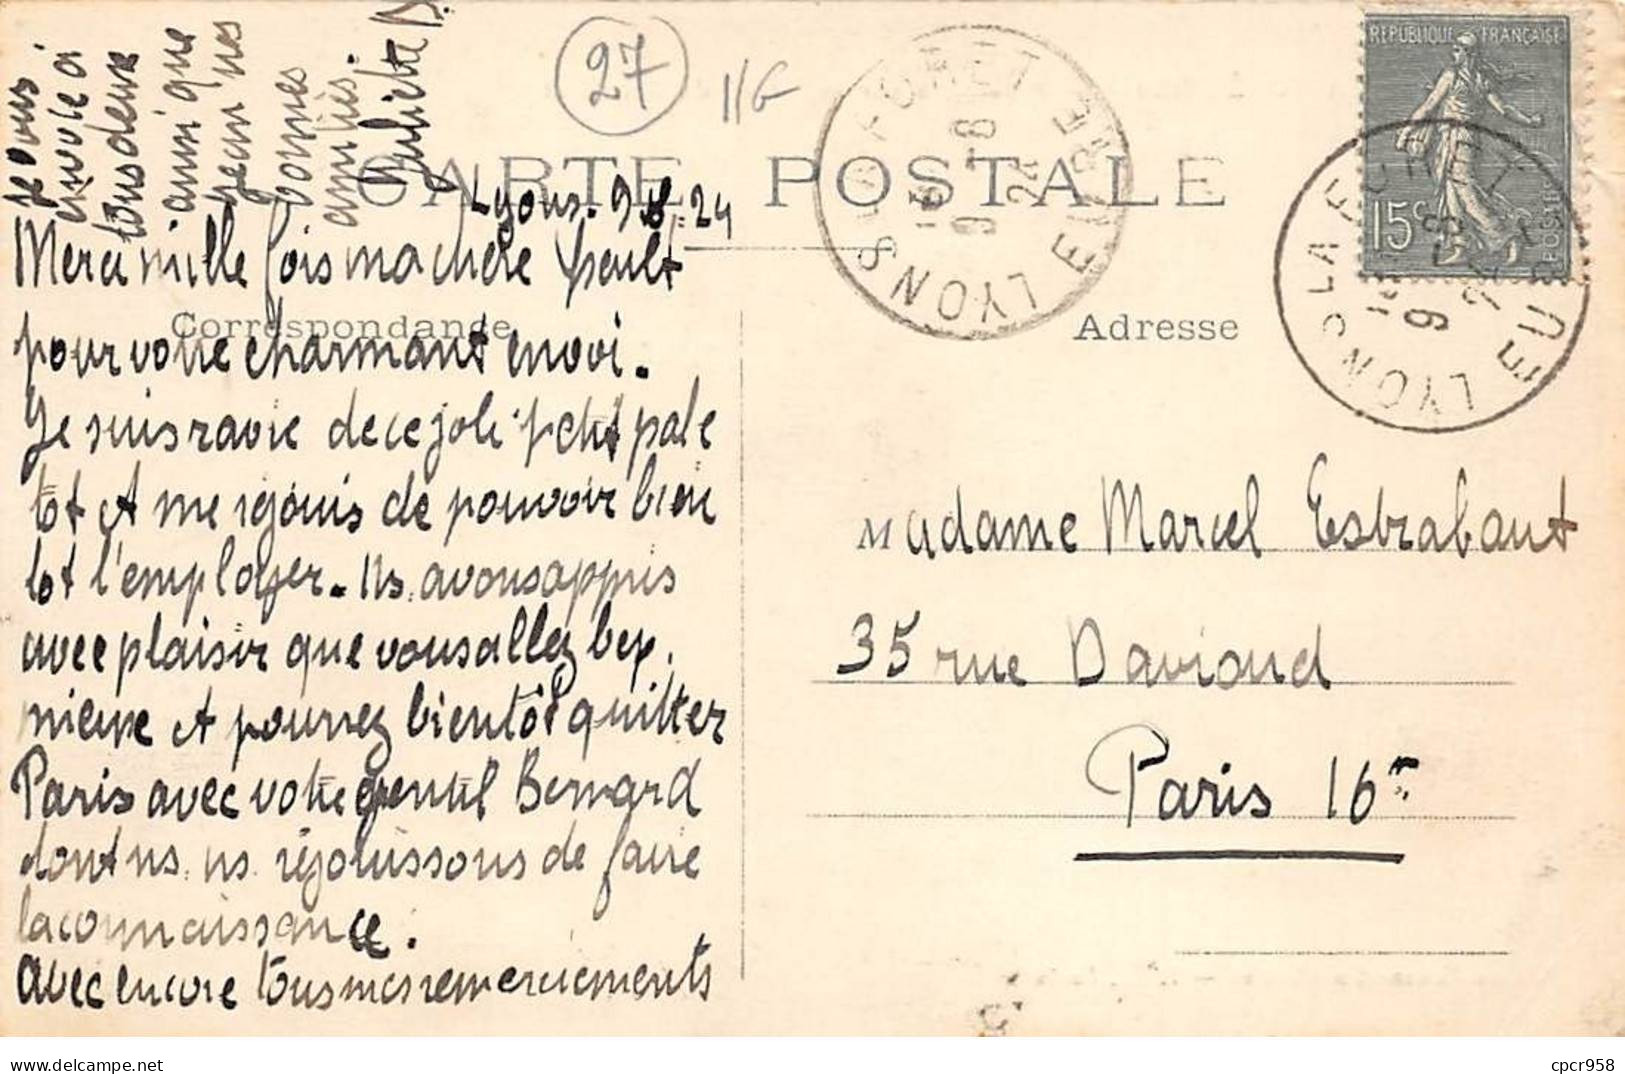 27
11G
CARTE POSTALE
Lyons. 9.8.24
Merci mille fois ma chère
pour votre charmant envoi.
Correspondance
Je suis ravie de ce joli petit pale
tot et me rejouis de pouvoir bien
tot l'employer. Ns. avons appris
avec plaisir que vous allez bep.
mieux et pourrez bientôt quitter
Paris avec votre gentil Bernard
dont ns. ns réjouissons de faire
la connaissance.
Avec encore tous mes remerciements
je vous
envoie à
tous deux
ainsi que
Jean nos
bonnes
amitiés.
Juliette D.
LYONS LA FORET EURE
16
9 - 8
24
REPUBLIQUE FRANÇAISE
15c
POSTES
LYONS LA FORET EURE
16
9 - 8
24
Adresse
Madame Marcel Estrabaut
35 rue Davioud
Paris 16e
je vends des cartes
cpcr958